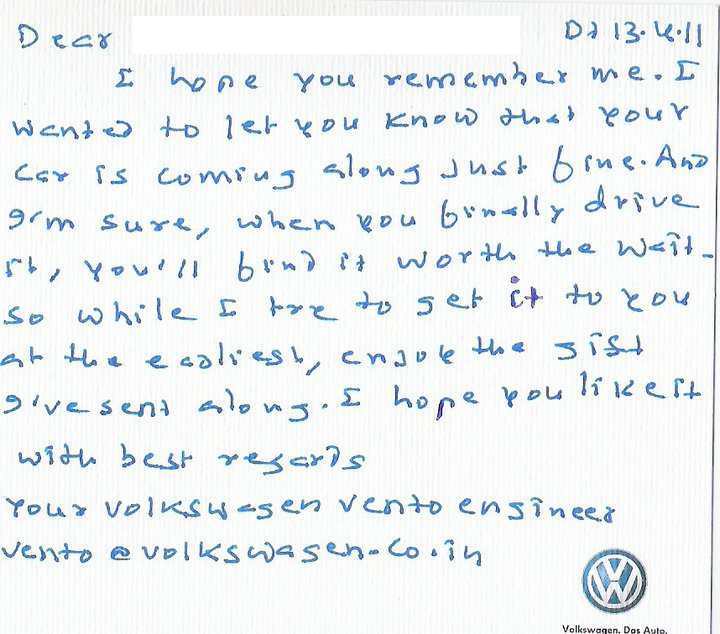 Dear Dt 13.4.11
I hope you remember me. I
wanted to let you know that your
car is coming along just fine. And
I'm sure, when you finally drive
it, you'll find it worth the wait.
so while I try to get it to you
at the earliest, enjoy the gift
I've sent along. I hope you like it
with best regards
Your volkswagen vento engineer
vento@volkswagen.co.in
Volkswagen. Das Auto.